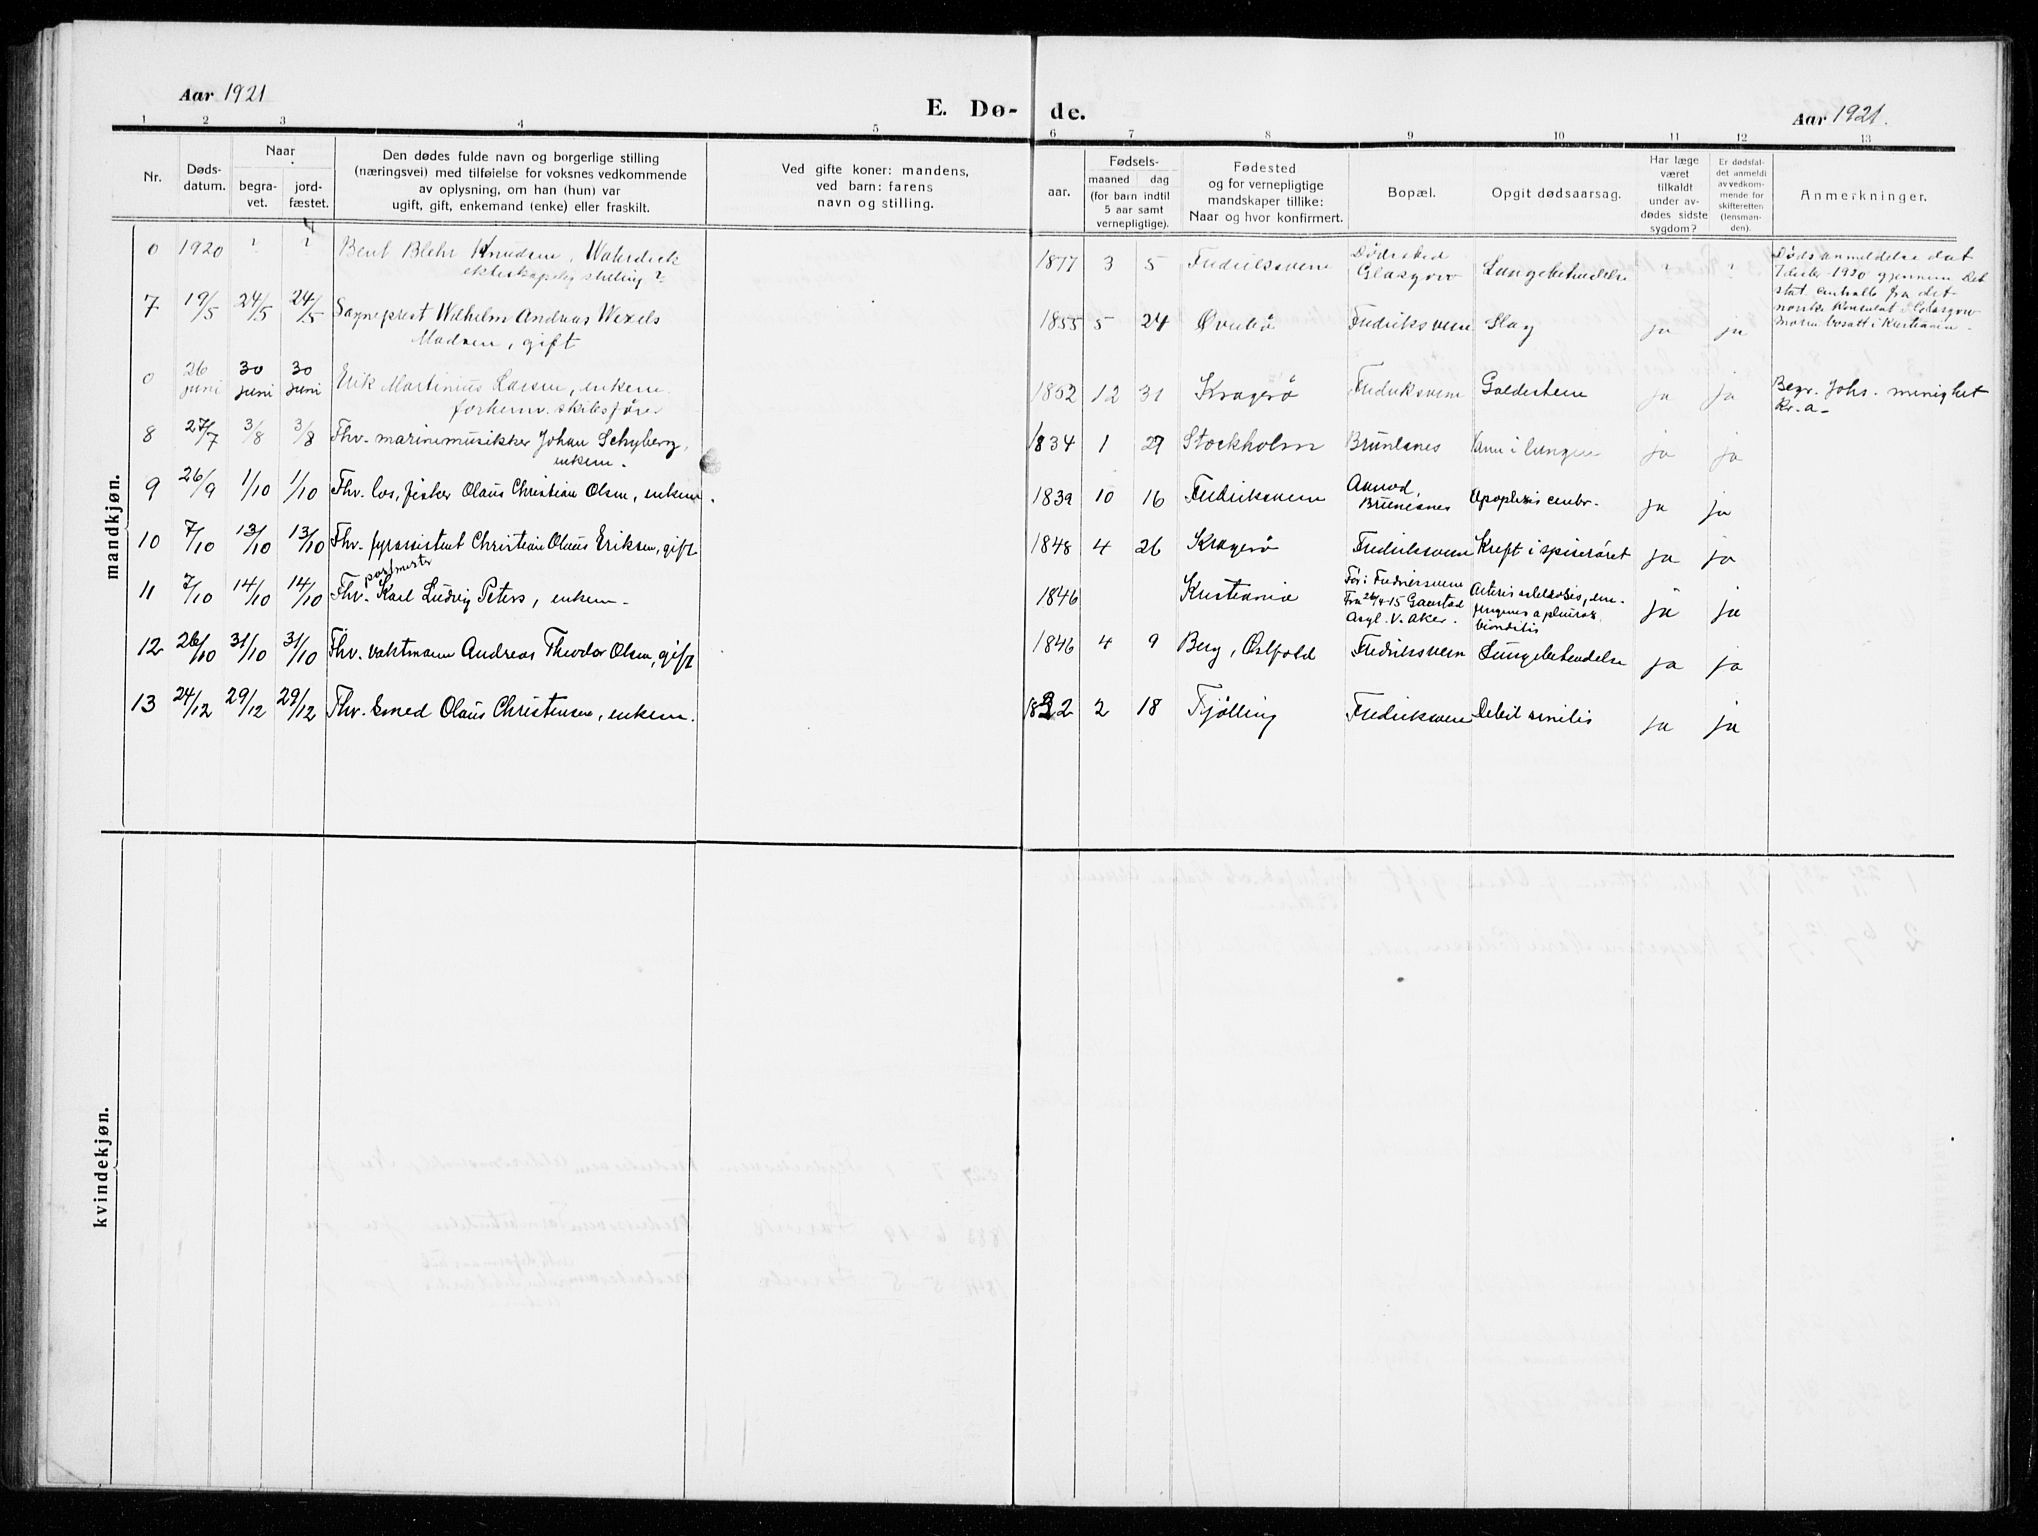 Aar 1921
E. Dø- de.
Aar 1921.
1 2 3 4 5 6 7 8 9 10 11 12 13
Nr.
Døds-
datum.
Naar
begra-
vet.
jord-
fæstet.
Den dødes fulde navn og borgerlige stilling
(næringsvei) med tilføielse for voksnes vedkommende
av oplysning, om han (hun) var
ugift, gift, enkemand (enke) eller fraskilt.
Ved gifte koner: mandens,
ved barn: farens
navn og stilling.
aar.
Fødsels-
maaned dag
(for barn indtil
5 aar samt
vernepligtige).
Fødested
og for vernepligtige
mandskaper tillike:
Naar og hvor konfirmert.
Bopæl.
Opgit dødsaarsag.
Har læge
været
tilkaldt
under av-
dødes sidste
sygdom?
Er dødsfal-
det anmeldt
av vedkom-
mende for
skifteretten
(lensman-
den).
Anmerkninger.
mandkjøn.
0 1920 ? ? Bent Blehr Knudsen,
ekteskapelig stilling ?
1877 3 5 Fredriksvern
Dødssted
Glasgow
Lungebetændelse ? ?
Dødsanmeldelse dat
1920 gjennem Det
stat. centralb. fra det
norske Konsulat i Glasgow
Moren bosatt i Kristiania.
7 19/5 24/5 24/5 Sogneprest Wilhelm Andreas Wexels
Madsen, gift
1855 5 24 Øvrebø Fredriksvern Slag ja ja
0 26 juni 30 juni 30 juni Erik Martinius Larsen, enkem.
forhenv. skibsfører
1852 12 31 Kragerø Fredriksvern Galdesten ja ja
Begr. Johs. menighet
Kr.a-
8 27/7 3/8 3/8 Fhv. marinemusikker Johan Schyberg,
enkem.
1834 1 29 Stockholm Brunlanes Vann i lungen ja ja
9 26/9 1/10 1/10 Fhv. los, fisker Olaus Christian Olsen, enkem.
1839 10 16 Fredriksvern
Agnod,
Brunlanes
Apoplexis cerebr. ja ja
10 7/10 13/10 13/10 Fhv. fyrassistent Christian Olaus Eriksen, gift
1848 4 26 Kragerø Fredriksvern Kreft i spiserøret ja ja
postmester
11 7/10 14/10 14/10 Fhv. Karl Ludvig Peters, enkem.
1846 Kristiania
Før i Fredriksvern
Fra 26/4-15 Gaustad
Asyl. V. Aker.
ja ja
12 26/10 31/10 31/10 Fhv. vaktmann Andreas Theodor Olsen, gift
1846 4 9 Berg, Østfold Fredriksvern Lungebetendelse ja ja
13 24/12 29/12 29/12 Fhv. smed Olaus Christensen, enkem.
1832 2 18 Tjølling Fredriksvern Debil. senilis ja ja
kvindekjøn.